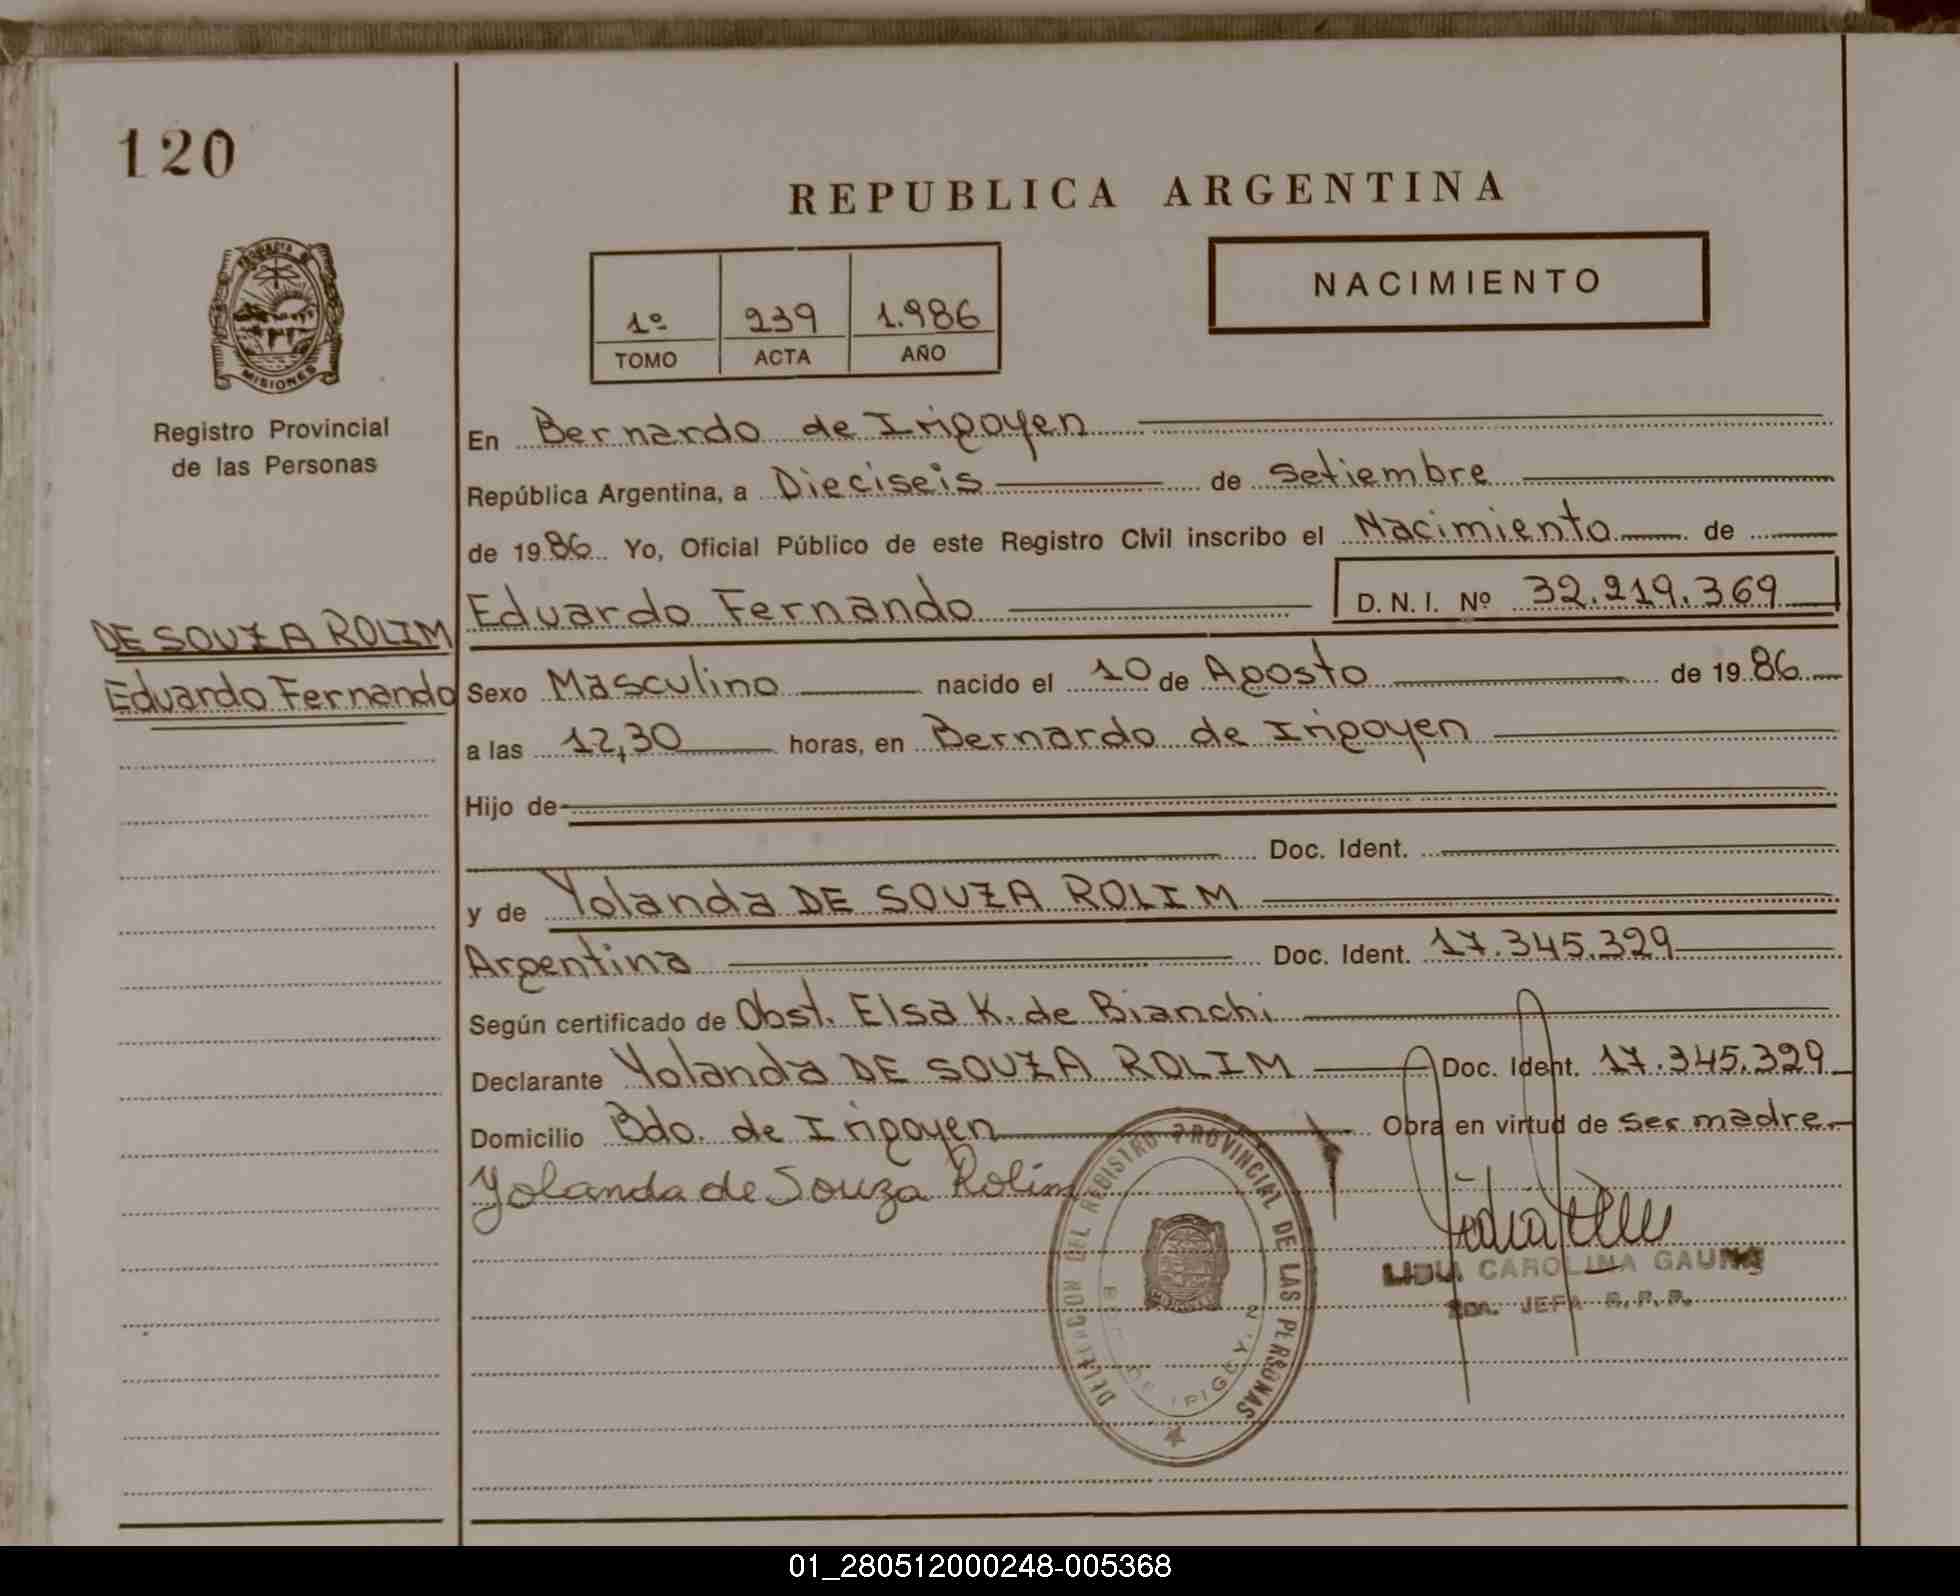 120
REPUBLICA ARGENTINA
NACIMIENTO
1º 239 1.986
TOMO ACTA AÑO
MISIONES
Registro Provincial
de las Personas
DE SOUZA ROLIM
Eduardo Fernando
En Bernardo de Irigoyen
República Argentina, a Dieciseis de Setiembre
de 1986 Yo, Oficial Público de este Registro Civil inscribo el Nacimiento de
Eduardo Fernando D. N. I. Nº 32.219.369
Sexo Masculino nacido el 10 de Agosto de 1986
a las 12,30 horas, en Bernardo de Irigoyen
Hijo de
Doc. Ident.
y de Yolanda DE SOUZA ROLIM
Argentina Doc. Ident. 17.345.329
Según certificado de Obst. Elsa K. de Bianchi
Declarante Yolanda DE SOUZA ROLIM Doc. Ident. 17.345.329
Domicilio Bdo. de Irigoyen Obra en virtud de ser madre
Yolanda de Souza Rolim
DELEGACION DEL REGISTRO PROVINCIAL DE LAS PERSONAS
LIDIA CAROLINA
JEFA R.P.P.
01_280512000248-005368